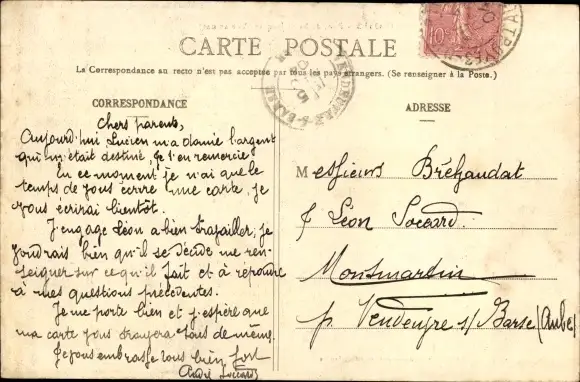 CARTE POSTALE
La Correspondance au recto n'est pas acceptée par tous les pays étrangers. (Se renseigner à la Poste.)
CORRESPONDANCE
Chers parents,
Aujourd'hui Lucien m'a donné l'argent
qui m'était destiné, je l'en remercie.
En ce moment je n'ai que le
temps de vous écrire une carte, je
vous écrirai bientôt.
J'engage Léon a bien travailler; je
voudrais bien qu'il se décide me ren-
seigner sur ce qu'il fait et à répondre
à mes questions précédentes.
Je me porte bien et j'espère que
ma carte vous trouvera tous de même.
Je vous embrasse tous bien fort
André Soccard
ADRESSE
Messieurs Bréhaudat
Léon Soccard
Montmartin
p. Vendeuvre s/ Barse (Aube)
10